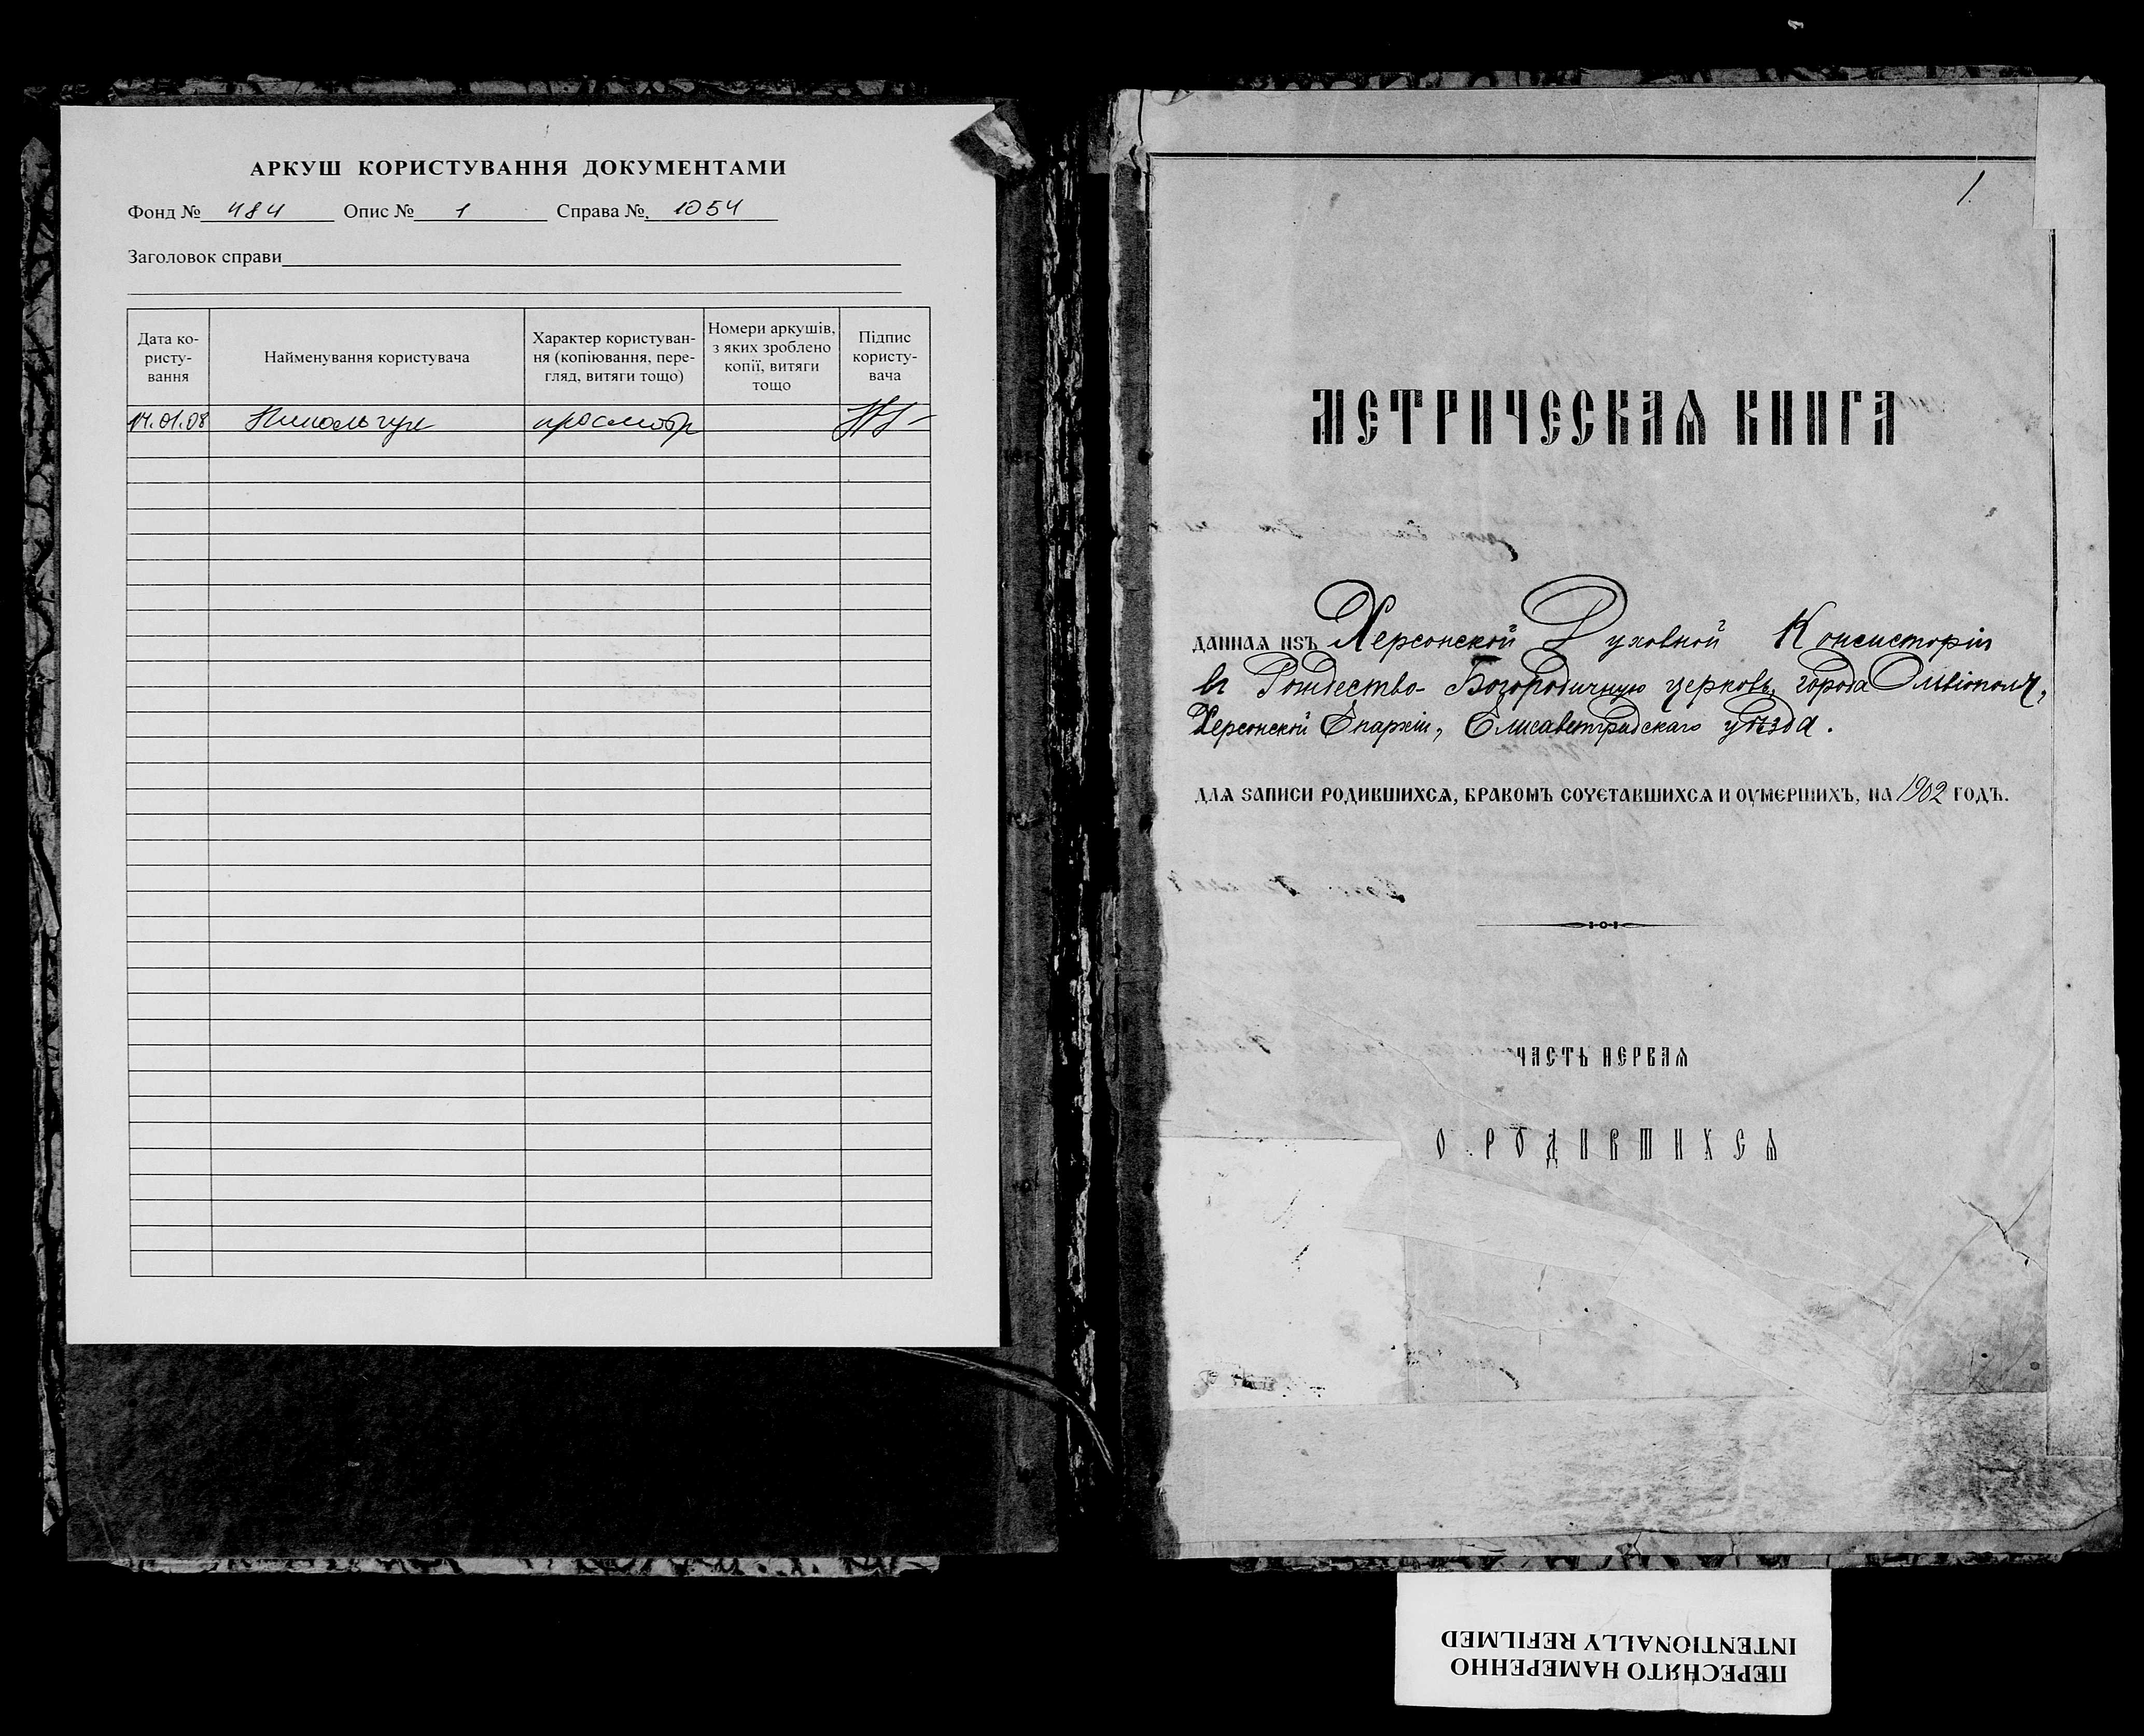 АРКУШ КОРИСТУВАННЯ ДОКУМЕНТАМИ
Фонд № 484 Опис № 1 Справа № 1054
Заголовок справи
Дата ко-
ристу-
вання
Найменування користувача
Характер користуван-
ня (копіювання, пере-
гляд, витяги тощо)
Номери аркушів,
з яких зроблено
копії, витяги
тощо
Підпис
користу-
вача
14.01.08 просмотр
1.
МЕТРИЧЕСКАѦ КНИГА
ДАННАѦ ИЗЪ Херсонской Духовной Консисторіи
въ Рождество-Богородичную церковь, города Ольвіополя,
Херсонской Епархіи, Елисаветградскаго уѣзда.
ДЛѦ ЗАПИСИ РОДИВШИХСѦ, БРАКОМЪ СОЧЕТАВШИХСѦ И ОУМЕРШИХЪ, НА 1902 ГОДЪ.
ЧАСТЬ ПЕРВАѦ
О РОДИВШИХСѦ
ПЕРЕСНЯТО НАМЕРЕННО
INTENTIONALLY REFILMED